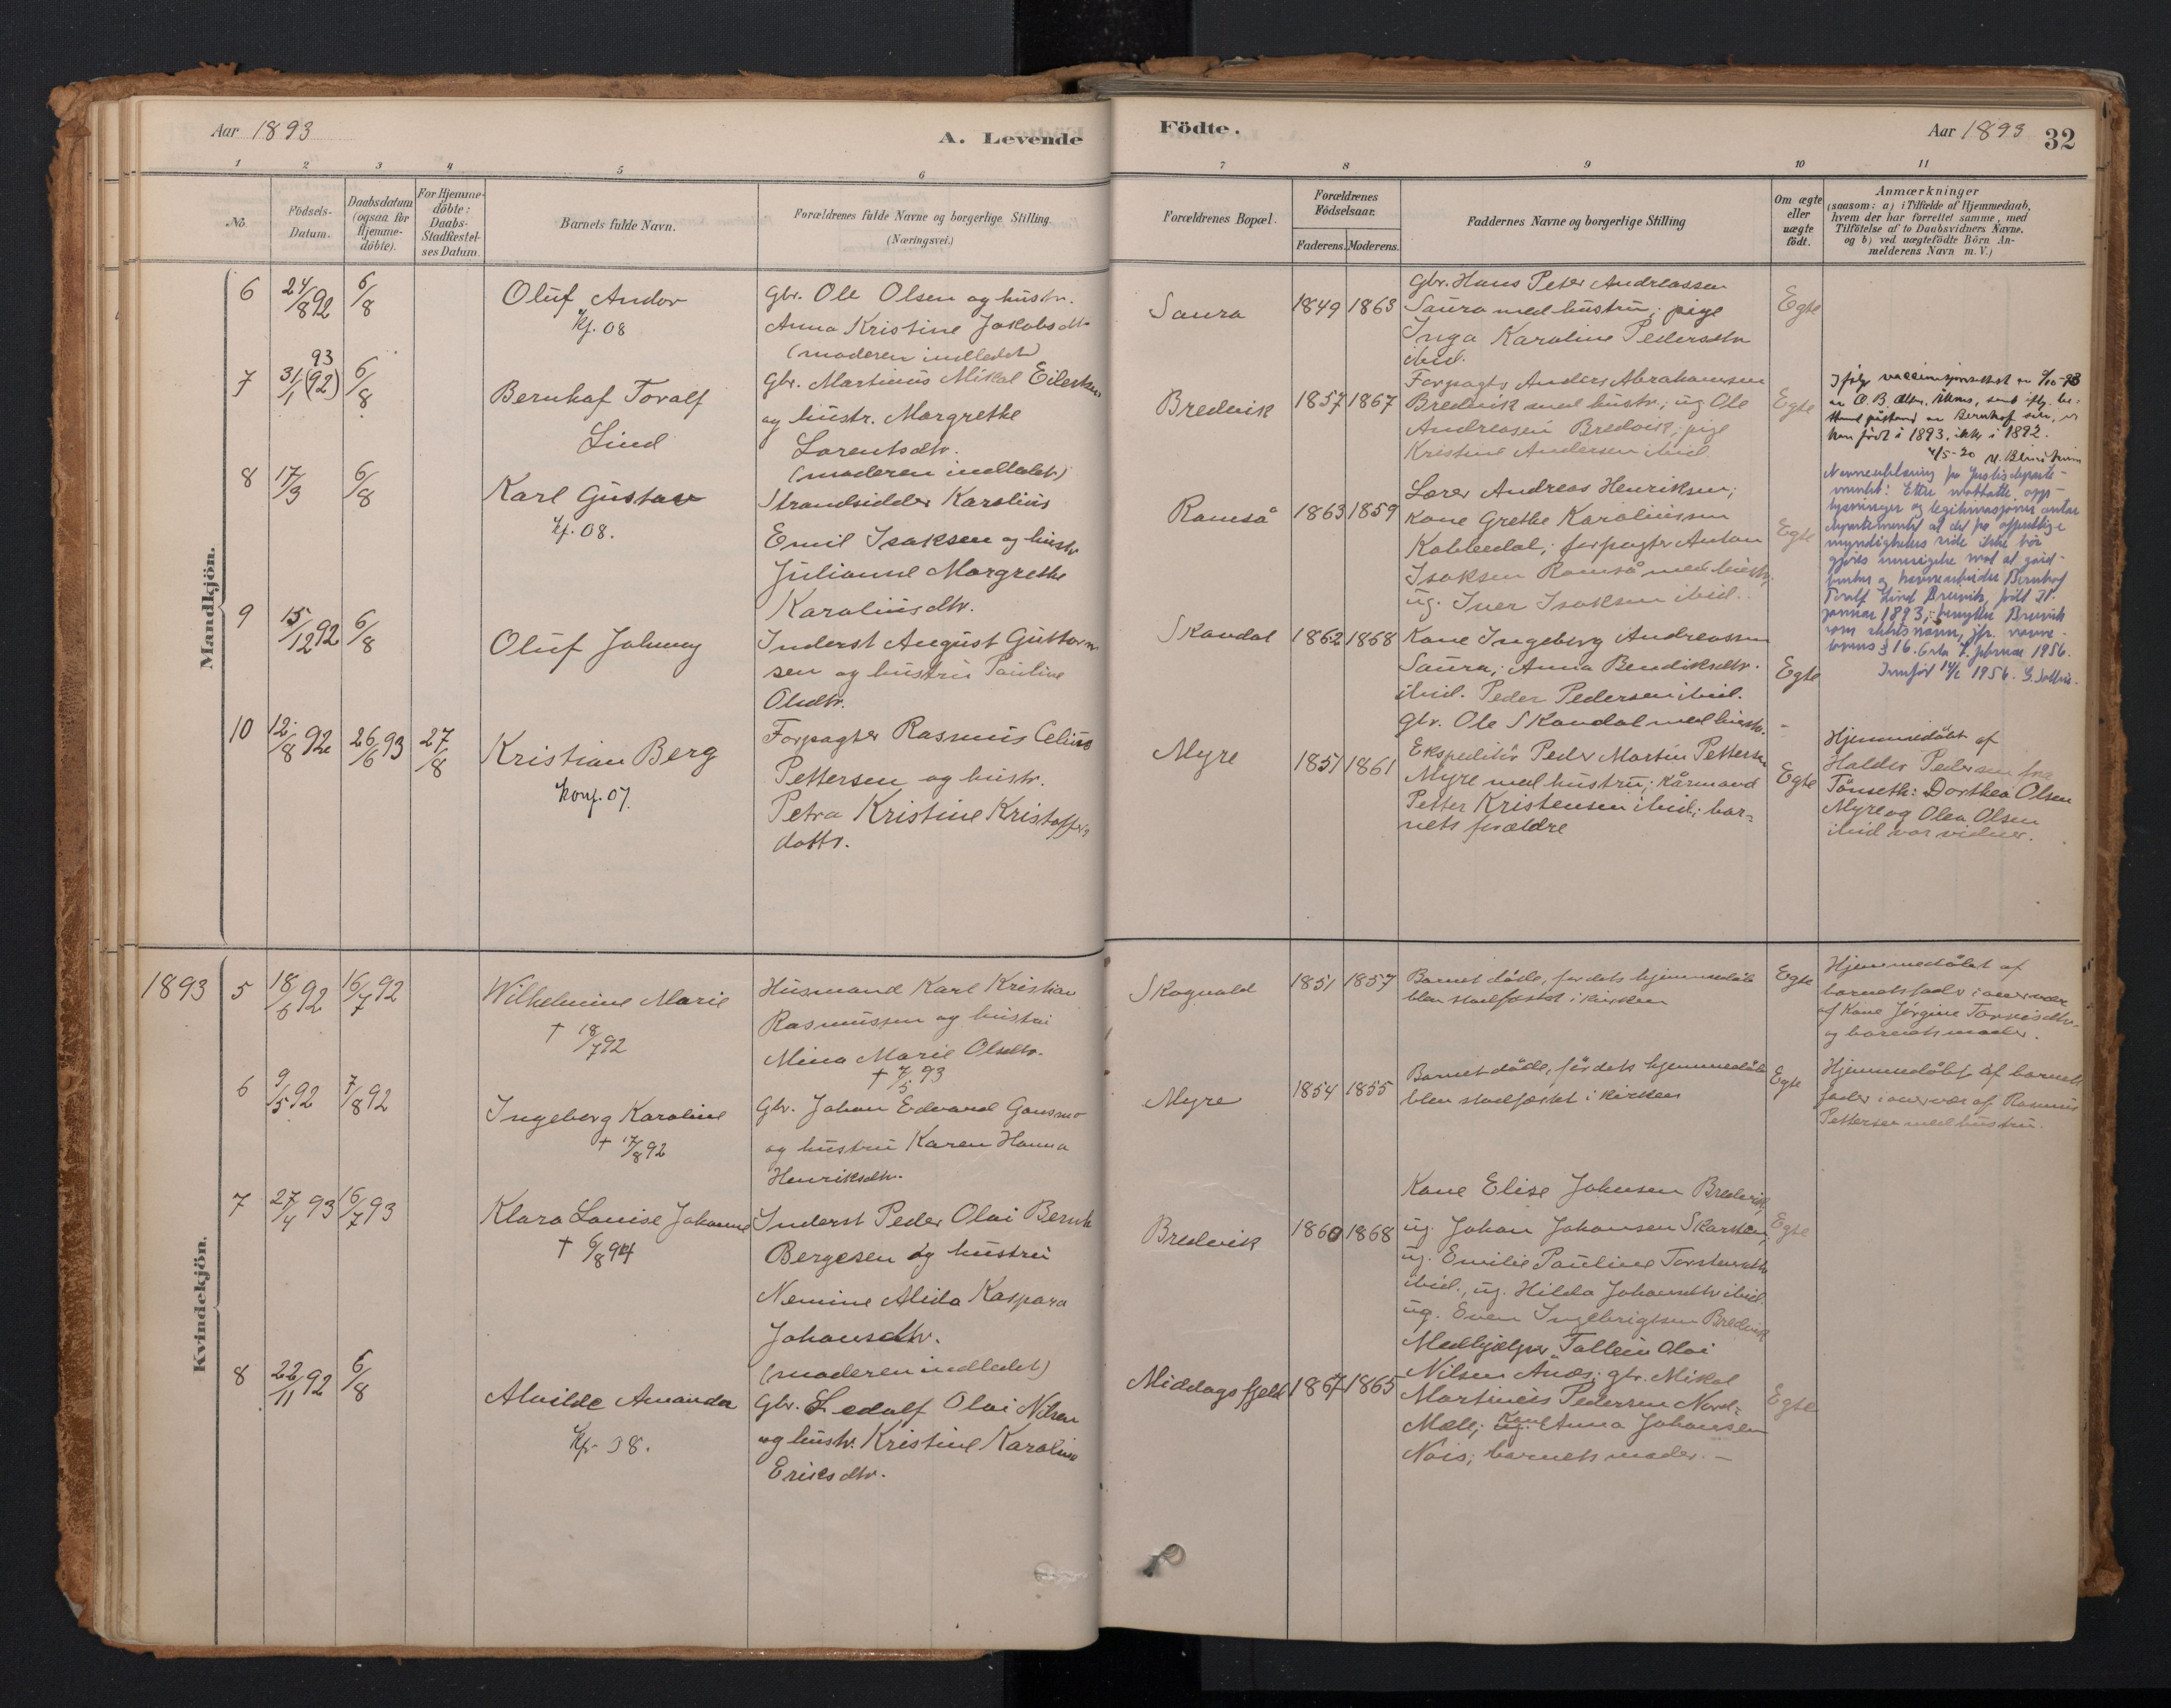 Aar 1893
A. Levende
1 2 3 4 5 6
No.
Födsels-
Datum.
Daabsdatum
(ogsaa for
Hjemme-
döbte).
For Hjemme-
döbte:
Daabs-
Stadfæstel-
ses Datum.
Barnets fulde Navn.
Forældrenes fulde Navne og borgerlige Stilling.
(Næringsvei.)
Mandkjön.
6 24/8 92 6/8
Oluf Andor
kf. 08
Gbr. Ole Olsen og hustr.
Anna Kristine Jakobsdtr
(moderen indledet)
7 31/1 (92) 93 6/8
Bernhof Toralf
Lind
Gbr. Martinus Mikal Eilertsen
og hustr. Margrethe
Lorentsdtr.
(moderen indledet)
8 17/3 6/8
Karl Gustav
kf. 08.
Strandsidder Karolius
Emil Isaksen og hustr
Julianne Margrethe
Karoliusdtr.
9 15/12 92 6/8
Oluf Johnny
Inderst August Guttorm
sen og hustru Pauline
Olsdtr.
10 12/8 92 26/6 93 27/8
Kristian Berg
konf. 07.
Forpagter Rasmus Celius
Pettersen og hustr.
Petra Kristine Kristoffers
dattr.
Kvindekjön.
1893 5 18/6 92 16/7 92
Wilhelmine Marie
† 18/7 92
Husmand Karl Kristian
Rasmussen og hustru
Mina Marie Olsdtr.
† 7/5 93
6 9/5 92 7/8 92
Ingeborg Karoline
† 17/8 92
Gbr. Johan Edvard
og hustru Karen Hanna
Henriksdtr.
7 27/4 93 16/7 93
Klara Louise Johanne
† 6/8 94
Inderst Peder Olai Bernh
Bergesen og hustru
Nemine Alida Kaspara
Johansdtr.
(moderen indledet)
8 22/11 92 6/8
Alvilde Amanda
kf. 08.
Gbr. Ledolf Olai Nilsen
og hustr. Kristine Karoline
Eriksdtr.
Födte.
Aar 1893
32
7 8 9 10 11
Forældrenes Bopæl.
Forældrenes
Födselsaar.
Faderens. Moderens.
Faddernes Navne og borgerlige Stilling
Om ægte
eller
uægte
födt.
Anmærkninger
(saasom: a) i Tilfælde af Hjemmedaab,
hvem der har forrettet samme, med
Tilföielse af to Daabsvidners Navne.
og b) ved uægtefödte Börn An-
melderens Navn m. V.)
Saura 1849 1863
Gbr. Hans Peter Andreassen
Saura med hustru; pige
Inga Karoline Pedersdtr
ibid.
Egte
Bredvik 1857 1867
Forpagter Anders Abrahamsen
Bredvik med hustr.; ug. Ole
Andreasen Bredvik; pige
Kristine Andersen ibid.
Egte
Ifølge vaccinasjonsattest
han født i 1893, ikke i 1892.
4/5-20
Ramså 1863 1859
Lærer Andreas Henriksen;
Kone Grethe Karoliussen
Kobbedal; forpagter Anton
Isaksen Ramså med hustr;
ug. Iver Isaksen ibid.
Egte
Navneendring fra Justisdeparte-
mentet: Etter mottatte opp-
lysninger og legitimasjoner antar
departementet at det fra offentlige
myndigheters side ikke bør
gjøres innsigelse mot at gård-
bruker og havnearbeider Bernhof
Toralf Lind Breivik, født 31.
januar 1893, benytter Breivik
som slektsnavn, jfr. navne-
lovens § 16. Oslo 4. februar 1956.
Innført 14/2 1956.
Skavdal 1862 1868
Kone Ingeborg Andreassen
Saura; Anna Bendiksdtr.
ibid. Peder Pedersen ibid.
Gbr. Ole Skavdal med hustr. –
Egte
Myre 1851 1861
Ekspeditör Peder Martin Pettersen
Myre med hustru; Kårmand
Petter Kristensen ibid.; bar-
nets forældre
Egte
Hjemmedöbt af
Haldor Pedersen fra
Tönseth: Dorthea Olsen
Myre og Olea Olsen
ibid var vidner.
Skogvold 1851 1857
Barnet döde, før dets hjemmedåb
blev stadfæstet i kirken
Egte
Hjemmedöbt af
barnets fader i overvær
af Kone Jörgine
og barnets moder.
Myre 1854 1855
Barnet döde, før dets hjemmedåb
blev stadfæstet i kirken
Egte
Hjemmedöbt af barnets
fader i overvær af Rasmus
Pettersen med hustru.
Bredvik 1860 1868
Kone Elise Johnsen Bredvik,
ug. Johan Johansen Skarsten,
ug. Emilie Pauline
ibid., ug. Hilda Johansdtr ibid.
ug. Even Ingebrigtsen Bredvik
Egte
Middagsfjeld 1867 1865
Medhjælper Tollein Olai
Nilsen Ånes; gbr. Mikal
Martineus Pedersen Nord-
Mæle; ug. Kone Anna Johansen
Nois; barnets moder. –
Egte